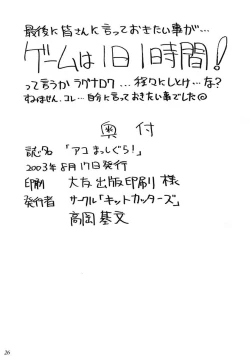 最後に皆さんに言っておきたい事が…
ゲームは1日1時間!
って言うかラグナロク…程々にしとけ…な?
すみません、コレ…自分に言っておきたい事でした◎
奥付
誌名 「アコまっしぐら!」
2003年8月17日発行
印刷 大友出版印刷 様
発行者 サークル「キットカッターズ」
高岡基文
26